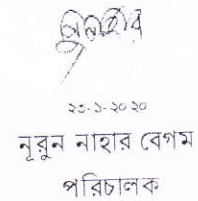 ২৩-১-২০২০
নূরুন নাহার বেগম
পরিচালক